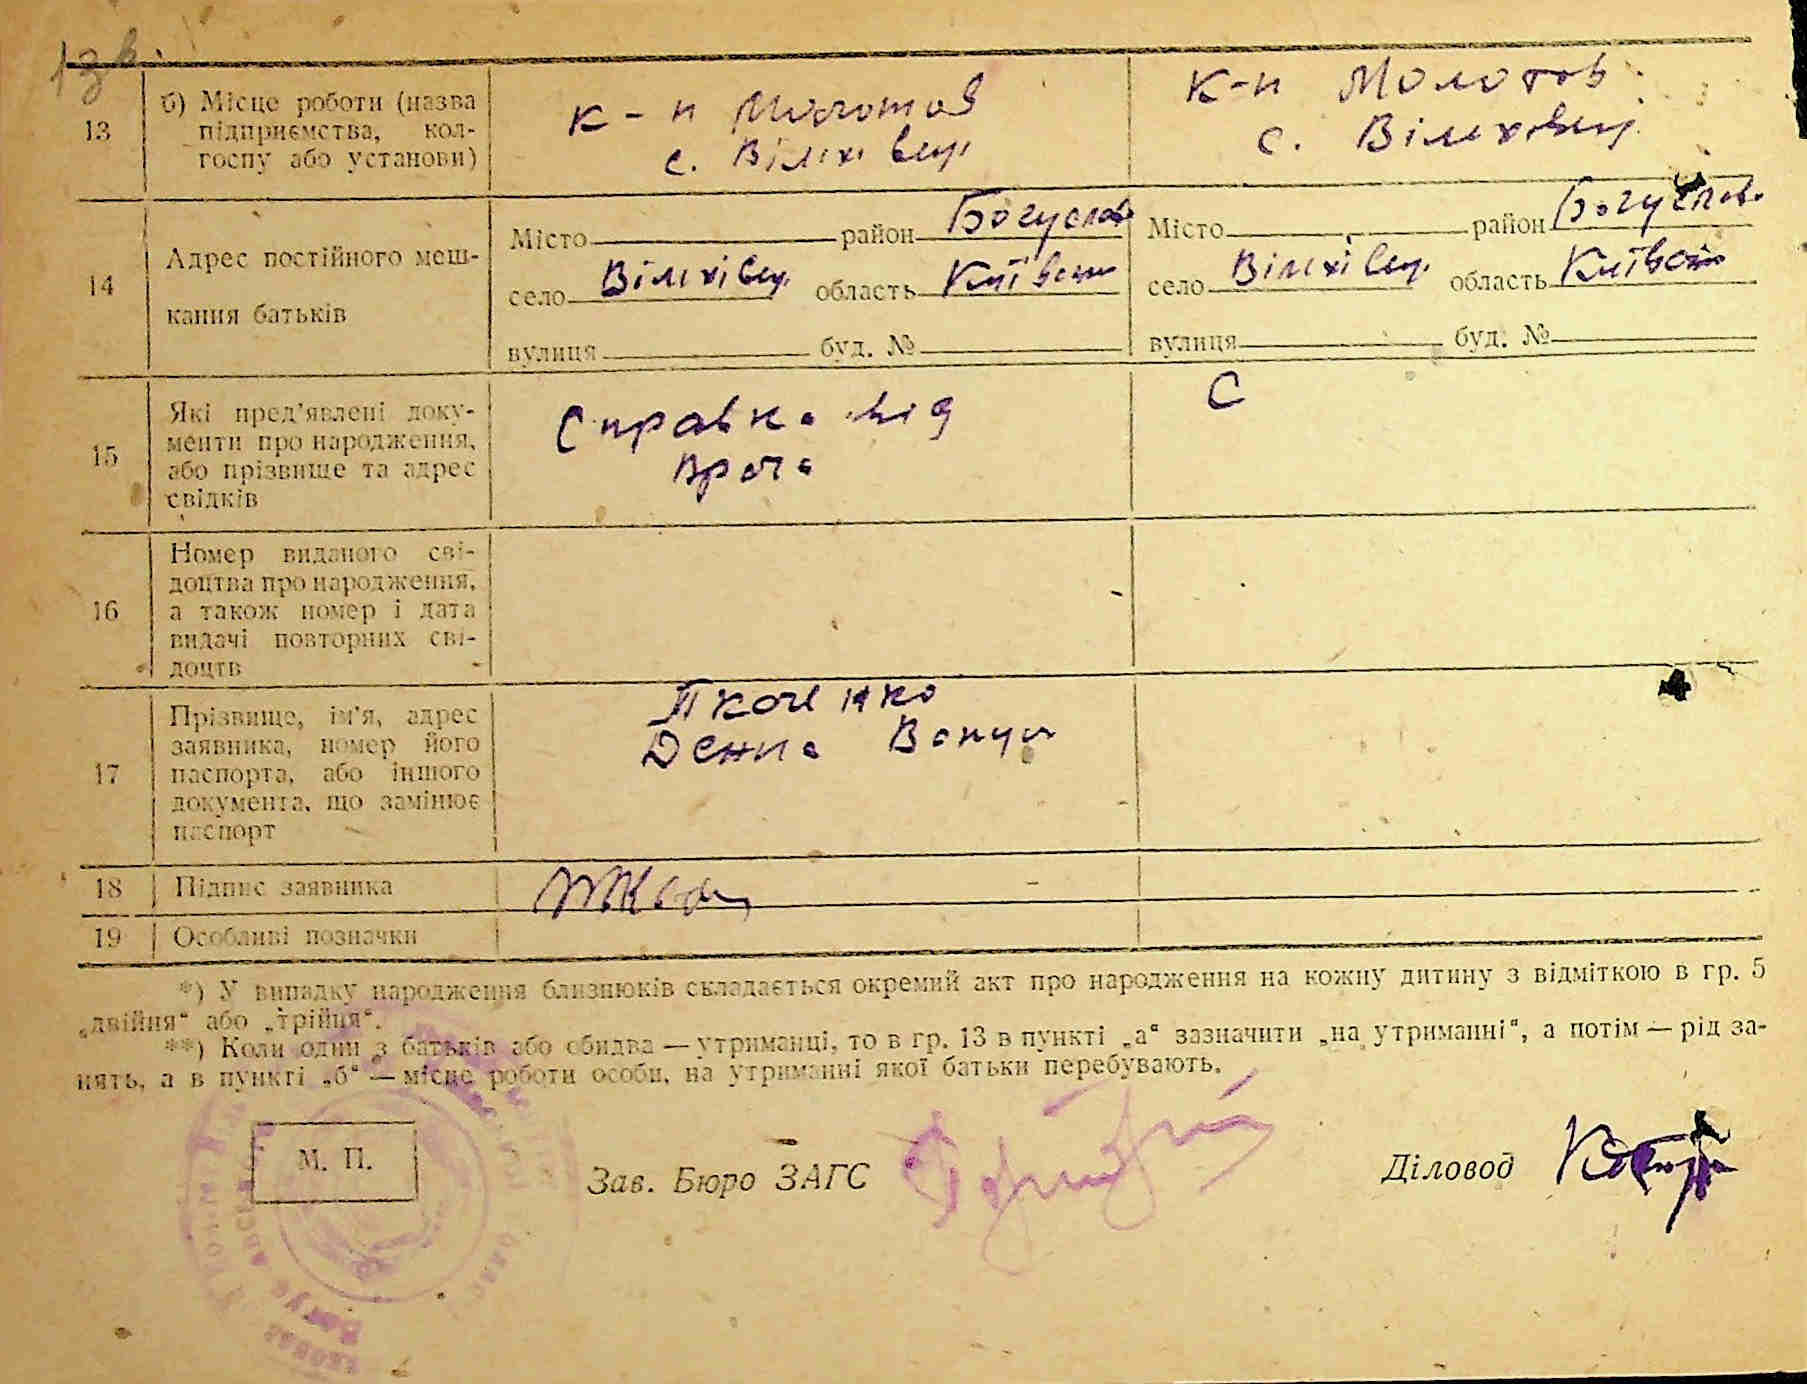 13в.
13
б) Місце роботи (назва
підприємства, кол-
госпу або установи)
к-п Молотов
с. Вільхівец.
к-п Молотов
с. Вільховец.
14
Адрес постійного меш-
кання батьків
Місто район Богуслав.
село Вільхівец. область Київськ
вулиця буд. №
Місто район Богуслав.
село Вільхівец. область Київськ
вулиця буд. №
15
Які пред’явлені доку-
менти про народження,
або прізвище та адрес
свідків
Справка від
врача
С
16
Номер виданого сві-
доцтва про народження,
а також номер і дата
видачі повторних сві-
доцтв
17
Прізвище, ім’я, адрес
заявника, номер його
паспорта, або іншого
документа, що замінює
паспорт
Ткаченко
18
Підпис заявника
19
Особливі позначки
*) У випадку народження близнюків складається окремий акт про народження на кожну дитину з відміткою в гр. 5
„двійня“ або „трійня“.
**) Коли один з батьків або обидва — утриманці, то в гр. 13 в пункті „а“ зазначити „на утриманні“, а потім — рід за-
нять, а в пункті „б“ — місце роботи особи, на утриманні якої батьки перебувають.
М. П.
Зав. Бюро ЗАГС
Діловод